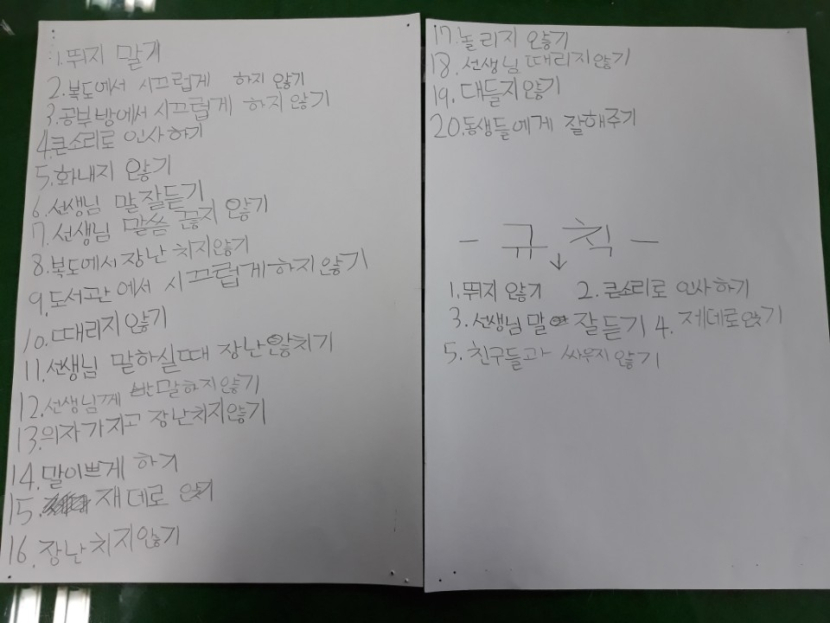 1. 뛰지 말기
2. 복도에서 시끄럽게 하지 않기
3. 공부방에서 시끄럽게 하지 않기
4. 큰소리로 인사하기
5. 화내지 않기
6. 선생님 말 잘듣기
7. 선생님 말씀 끊지 않기
8. 복도에서 장난 치지않기
9. 도서관에서 시끄럽게하지않기
10. 때리지 않기
11. 선생님 말하실때 장난않치기
12. 선생님께 반말하지않기
13. 의자가지고 장난치지않기
14. 말이쁘게 하기
15. 재데로 앉기
16. 장난치지않기
17. 놀리지 않기
18. 선생님 때리지않기
19. 대들지 않기
20. 동생들에게 잘해주기
- 규칙 -
↓
1. 뛰지 않기 2. 큰소리로 인사하기
3. 선생님 말 잘듣기 4. 제데로앉기
5. 친구들과 싸우지않기